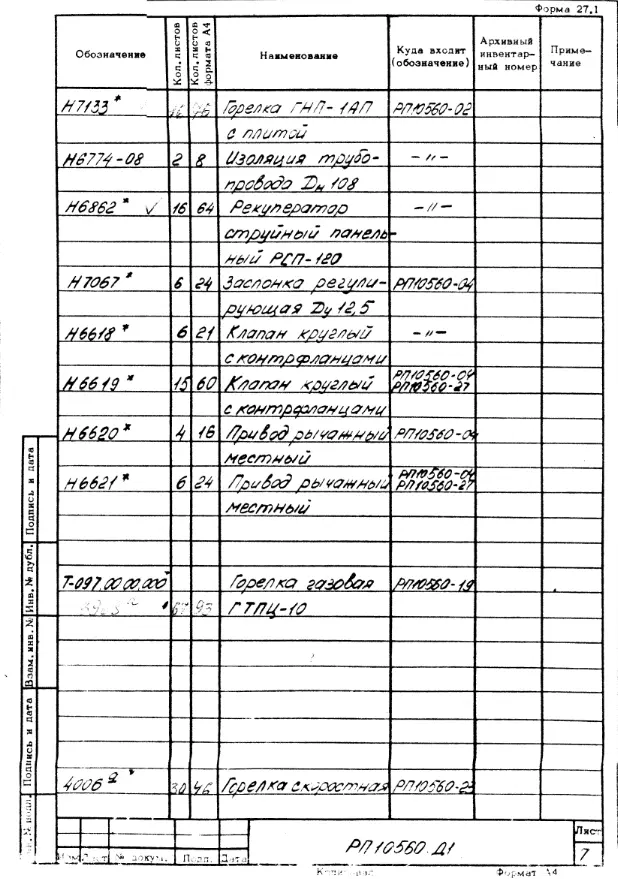 Форма 27.1
Обозначение
Кол. листов
Кол. листов формата А4
Наименование
Куда входит (обозначение)
Архивный инвентар- ный номер
Приме- чание
Н7133 * Горелка ГНП-1АП РП10560-02
с плитой
Н6774-08 2 8 Изоляция трубо- -"-
провода Dн 108
Н6862 * √ 16 64 Рекуператор -"-
струйный панель-
ный РСП-120
Н7067 * 6 24 Заслонка регули- РП10560-04
рующая Dу 12,5
Н6618 * 6 21 Клапан круглый -"-
с контрфланцами
РП10560-04
Н6619 * 15 60 Клапан круглый РП10560-27
с контрфланцами
Н6620 * 4 16 Привод рычажный РП10560-04
местный
РП10560-04
Н6621 * 6 24 Привод рычажный РП10560-27
местный
Т-097.00.00.000 Горелка газовая РП10560-19
93 ГТПЦ-10
4006 30 46 Горелка скоростная РП10560-23
Подпись и дата
Инв. № дубл.
Взам. инв. №
Подпись и дата
РП10560.Д1
Лист
7
№ докум.
Дата
Формат А4